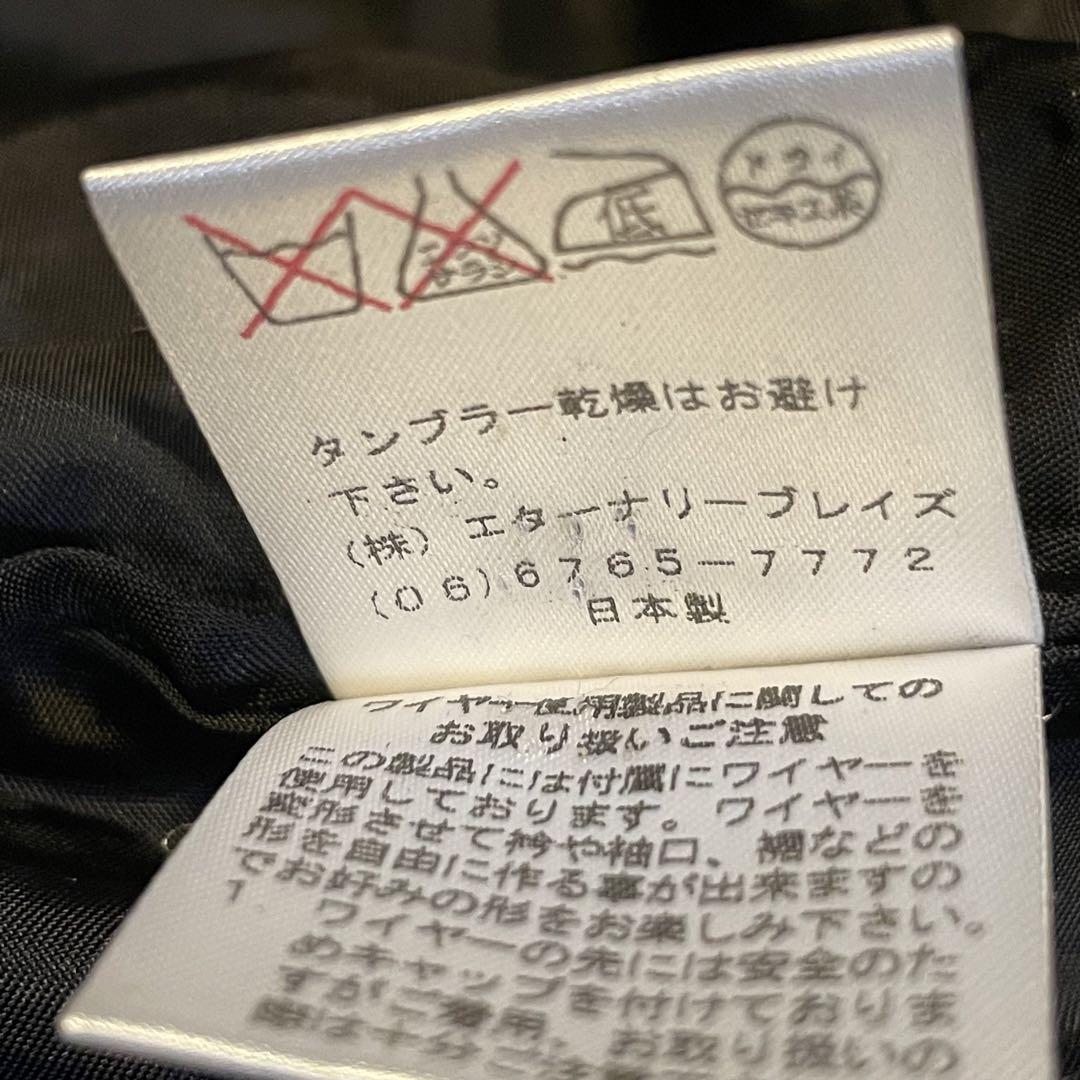 エンソ
サラシ
低
ドライ
セキユ系
タンブラー乾燥はお避け
下さい。
(株) エターナリーブレイズ
(06)6765-7772
日本製
ワイヤー使用製品に関しての
お取り扱いご注意
この製品には付属にワイヤーを
使用しております。ワイヤーを
変形させて衿や袖口、裾などの
形を自由に作る事が出来ますの
でお好みの形をお楽しみ下さい。
1
ワイヤーの先には安全のた
めキャップを付けておりま
すがご着用、お取り扱いの
際は十分ご注